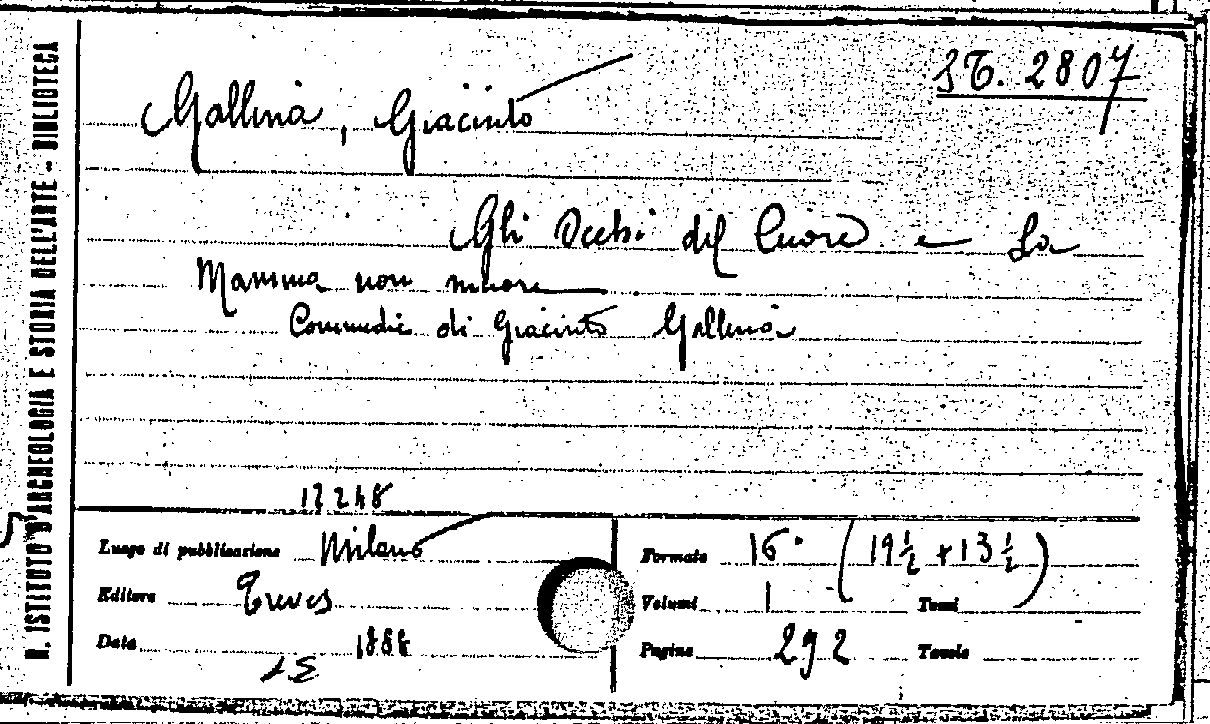 R. ISTITUTO D'ARCHEOLOGIA E STORIA DELL'ARTE - BIBLIOTECA
ST. 2807
Gallina, Giacinto
Gli Occhi del Cuore e La
Mamma non muore
Commedie di Giacinto Gallina
Luogo di pubblicazione Milano
Editore Treves
Data
Formato 16° (19 ½ + 13 ½)
Volumi 1 Tomi
Pagine 292 Tavole